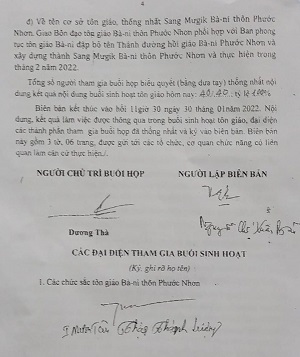 4
đ) Về tên cơ sở tôn giáo, thống nhất Sang Mưgik Bà-ni thôn Phước
Nhơn. Giao Bôn đạo tôn giáo Bà-ni thôn Phước Nhơn phối hợp với Ban phong
tục tôn giáo Bà-ni đắp bộ tên Thánh đường hồi giáo Bà-ni Phước Nhơn và
xây dựng thành Sang Mưgik Bà-ni thôn Phước Nhơn và thực hiện trong
tháng 2 năm 2022.
Tổng số người tham gia buổi họp biểu quyết (bằng đưa tay) thống nhất nội
dung kết quả nội dung buổi sinh hoạt tôn giáo hôm nay: 40/40. tỷ lệ 100%
Biên bản kết thúc vào hồi 11giờ 30 ngày 30 tháng 01năm 2022. Nội
dung, kết quả làm việc được thông qua trong buổi sinh hoạt tôn giáo, đại diện
các thành phần tham gia buổi họp đã thống nhất và ký vào biên bản. Biên bản
này gồm 3 tờ, 06 trang, được gửi tới các tổ chức, cơ quan chức năng có liên
quan làm căn cứ thực hiện./.
NGƯỜI CHỦ TRÌ BUỔI HỌP
NGƯỜI LẬP BIÊN BẢN
Dương Thà
CÁC ĐẠI DIỆN THAM GIA BUỔI SINH HOẠT
(Ký, ghi rõ họ tên)
1. Các chức sắc tôn giáo Bà-ni thôn Phước Nhơn